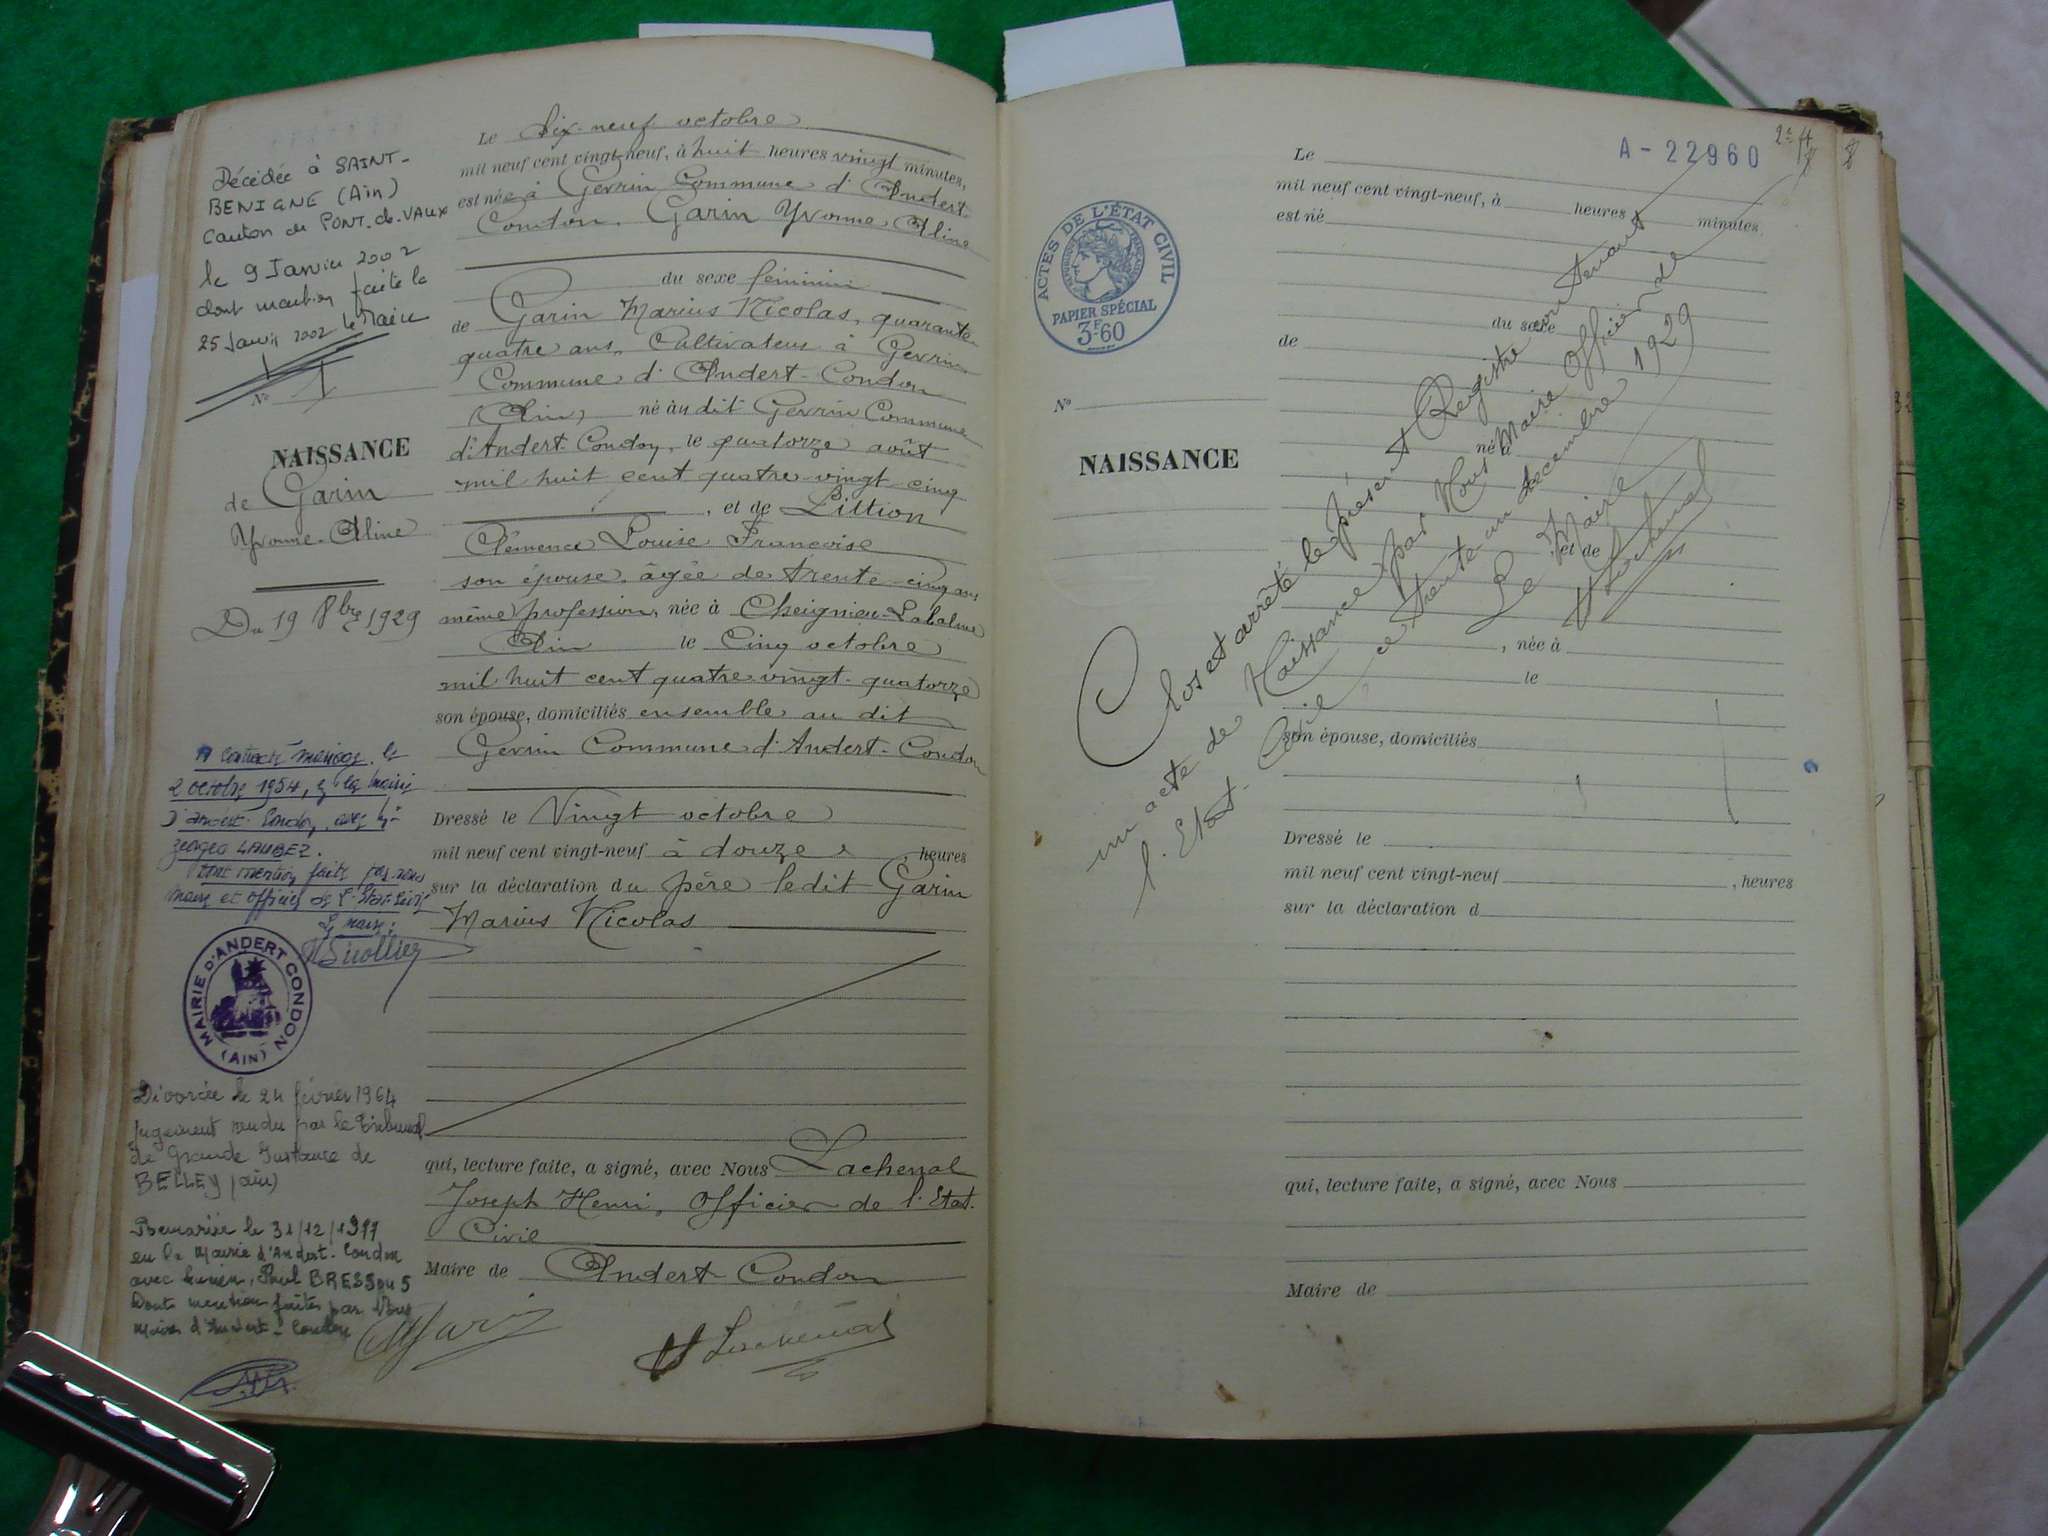 Décédée à SAINT-
BENIGNE (Ain)
Canton de PONT-de-VAUX
le 9 Janvier 2002
dont mention faite le
25 Janvier 2002 le Maire
No 1
NAISSANCE
de Garin
Yvonne-Aline
Du 19 8bre 1929
A contracté mariage, le
2 octobre 1954, à la mairie
d'Andert-Condon, avec
Georges LAUBEZ.
Dont mention faite par nous
maire et officier de l'Etat-Civil
Le maire:
MAIRIE D'ANDERT CONDON
(AIN)
Divorcée le 24 février 1964
jugement rendu par le Tribunal
de Grande Instance de
BELLEY (ain)
Remariée le 31/12/1977
en la Mairie d'Andert-Condon
avec Lucien, Paul
Dont mention faites par Nous
Maire d'Andert-Condon
Le Dix-neuf octobre
mil neuf cent vingt-neuf, à huit heures vingt minutes,
est née à Gevrin Commune d'Andert-
Condon, Garin Yvonne Aline
du sexe féminin
de Garin Marius Nicolas, quarante-
quatre ans, Cultivateur à Gevrin
Commune d'Andert-Condon
(Ain) né au dit Gevrin Commune
d'Andert-Condon, le quatorze août
mil huit cent quatre-vingt-cinq
, et de Littion
Clémence Louise Françoise
son épouse, âgée de trente-cinq ans
même profession, née à Cheignieu-Labalme
Ain le Cinq octobre
mil huit cent quatre vingt-quatorze
son épouse, domiciliés ensemble au dit
Gevrin Commune d'Andert-Condon
Dressé le Vingt octobre
mil neuf cent vingt-neuf à douze, heures
sur la déclaration du père ledit Garin
Marius Nicolas
qui, lecture faite, a signé, avec Nous Lachenal
Joseph Henri, Officier de l'Etat-
Civil
Maire de Andert Condon
M Garin
H Lachenal
A-22960
ACTES DE L'ÉTAT CIVIL
RÉPUBLIQUE FRANÇAISE
PAPIER SPÉCIAL
3F60
Le
mil neuf cent vingt-neuf, à heures minutes,
est né
du sexe
de
No
NAISSANCE
né à
, et de
, née à
le
son épouse, domiciliés
Clos et arrêté le présent Registre contenant
un acte de Naissance par Nous Maire Officier de
l'Etat-Civil ce trente-un décembre 1929
Le Maire
H Lachenal
Dressé le
mil neuf cent vingt-neuf , heures
sur la déclaration d
qui, lecture faite, a signé, avec Nous
Maire de